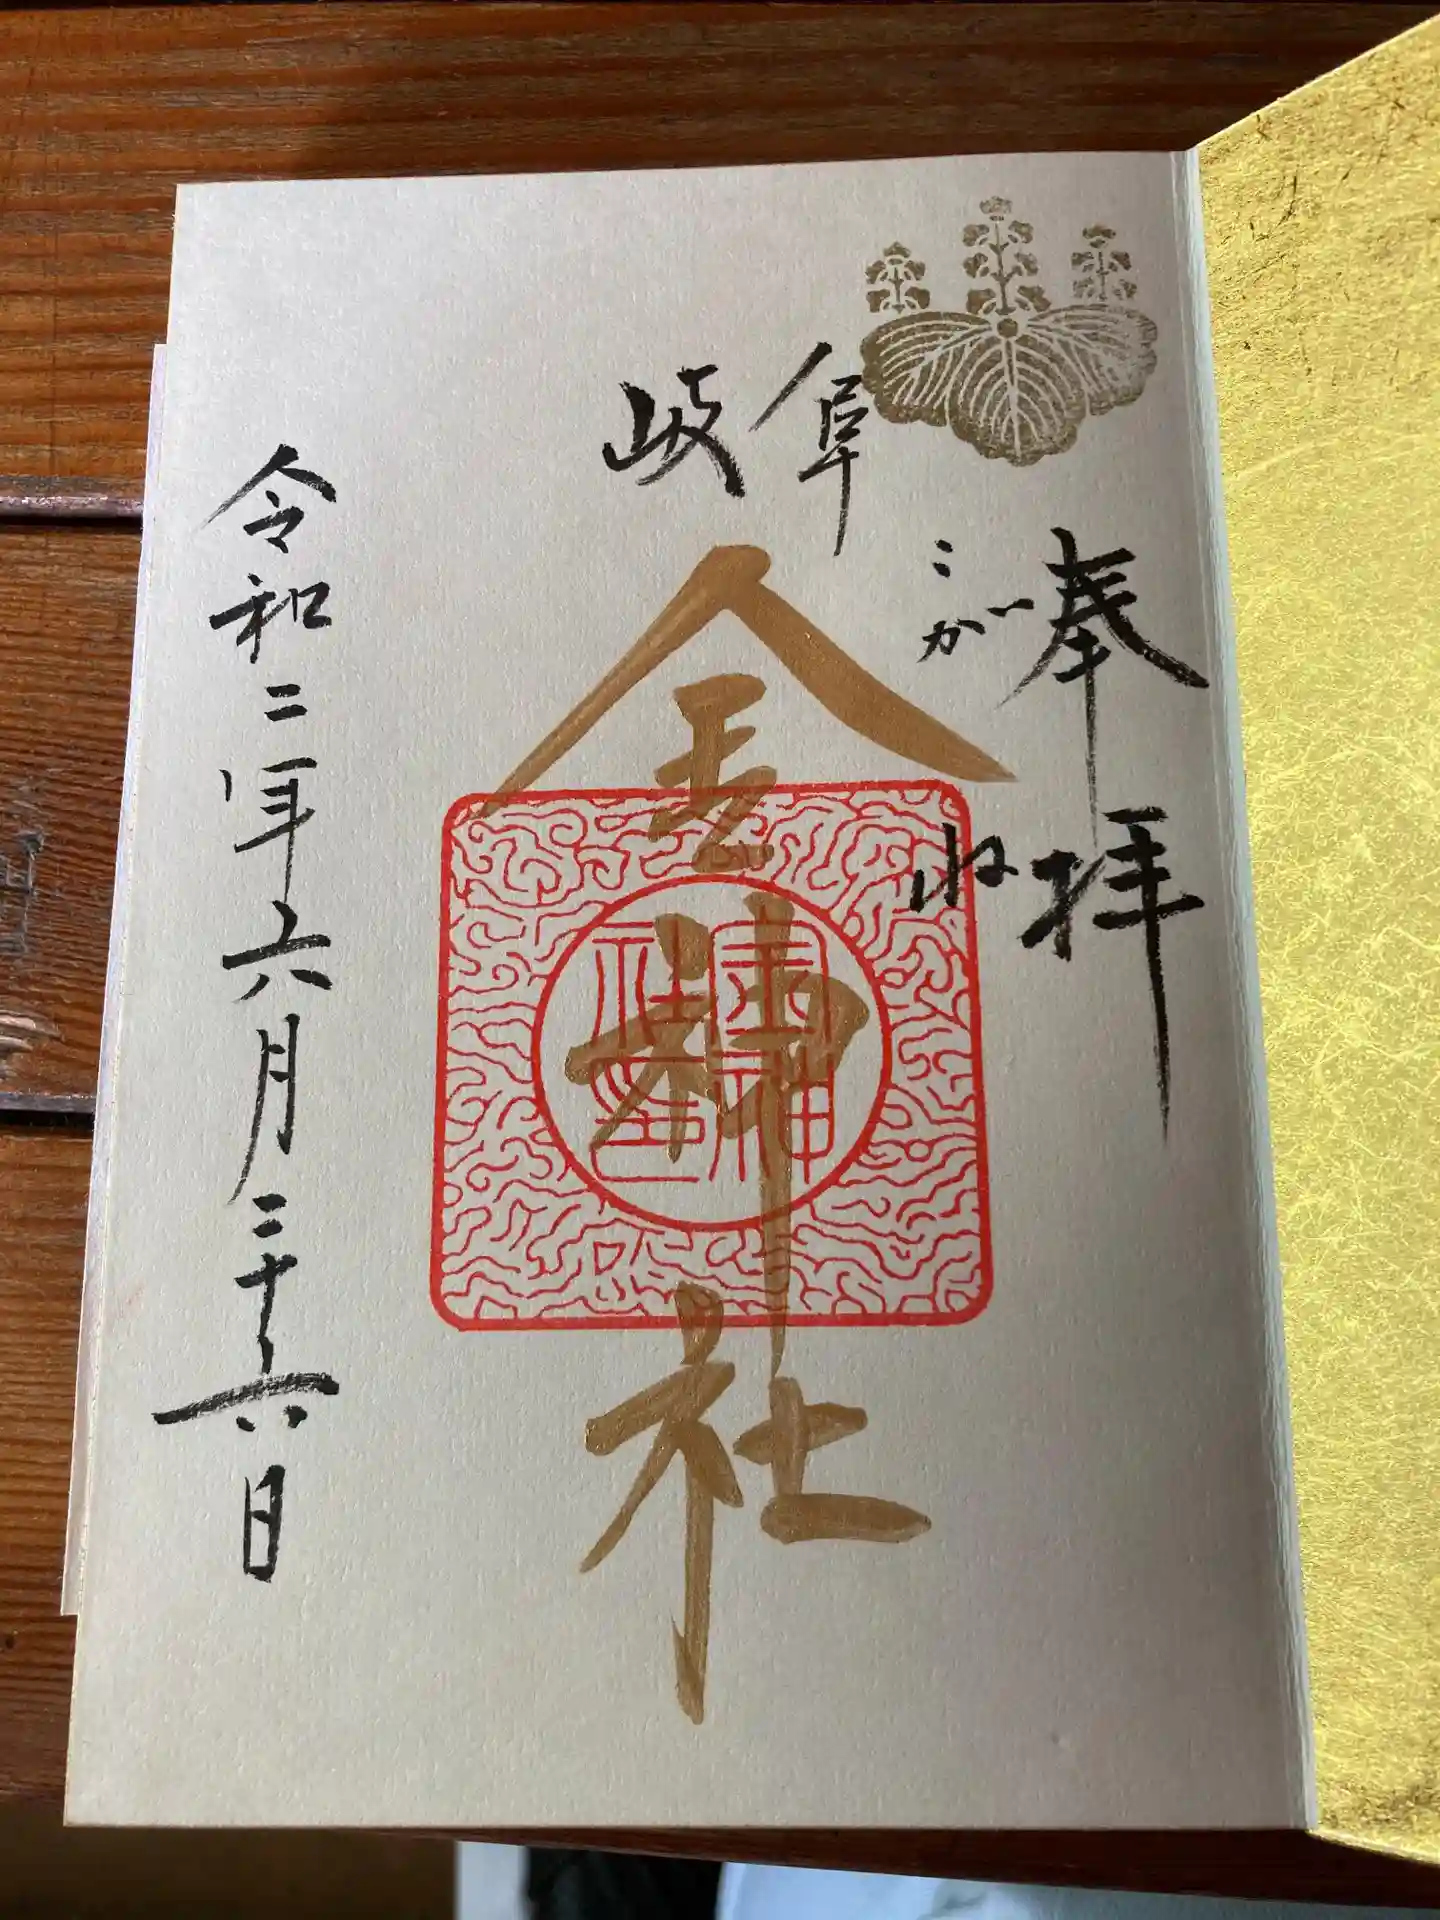 奉拝
こがね
岐阜
金神社
金神
社印
令和二年六月二十六日